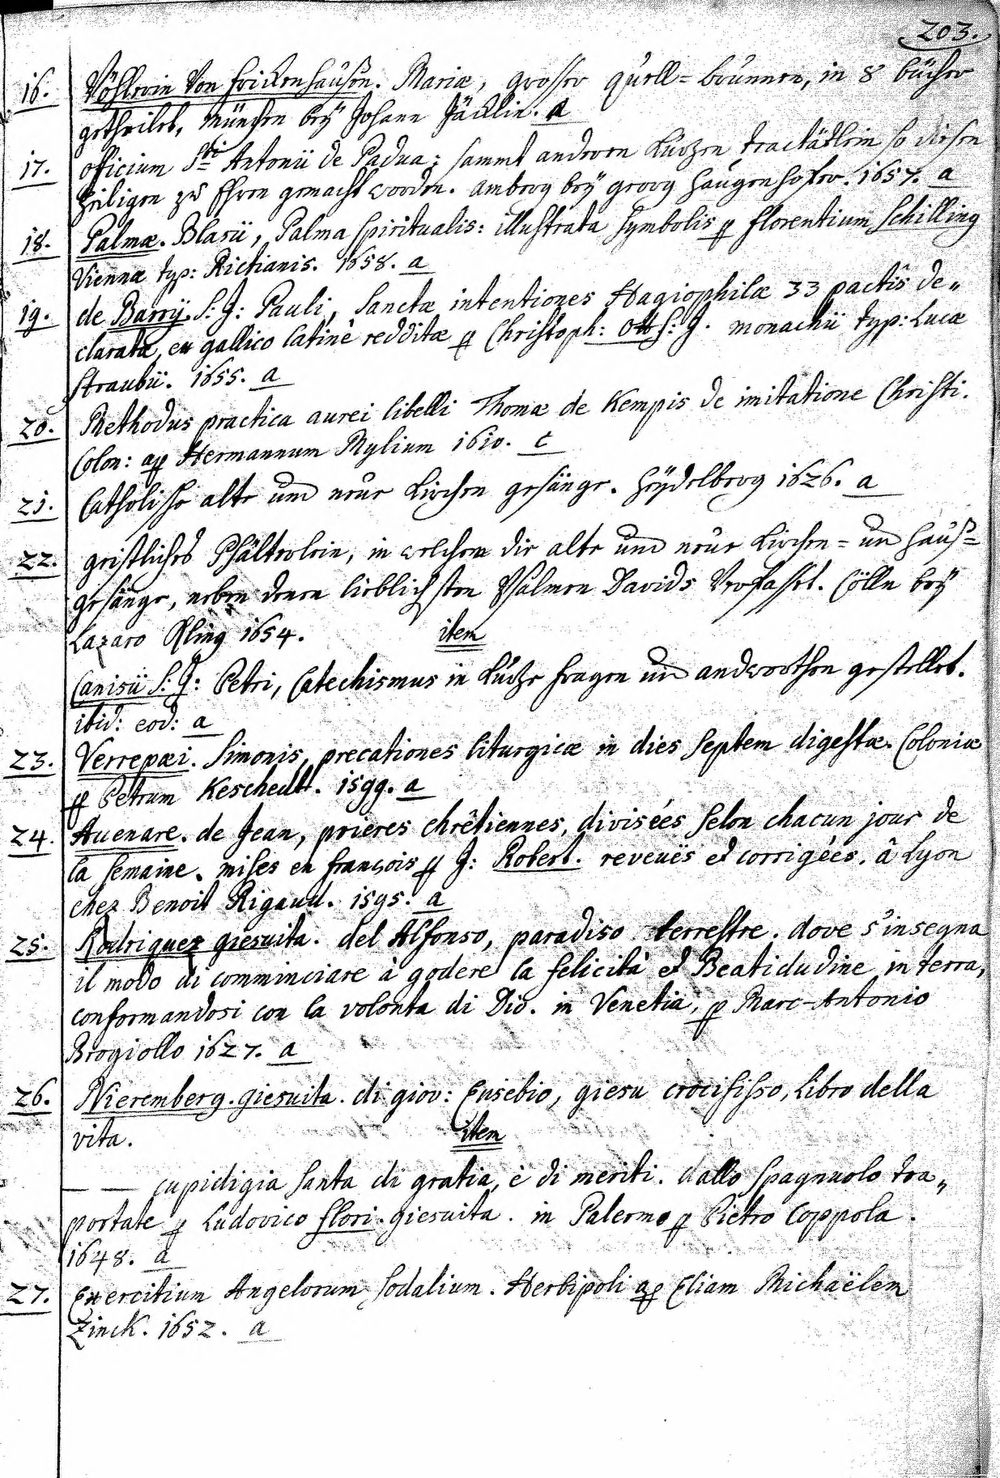 203.
16. Vöhlerin Von Frickenhausen. Mariæ, grosser quell=brunnen, in 8 bücher
getheilet, München beÿ Johann Jäcklin. a
17. officium S.ti Antonii de Padua; sammt anderen kurzen tractätlein so diesen
heiligen zu Ehren gemacht worden. Amberg beÿ georg haugenhofer. 1657. a
18. Palmæ. Blasii, Palma spiritualis: illustrata symbolis p florentium schilling
Viennæ typ: Rictianis. 1658. a
19. de Barrÿ S: J: Pauli, Sanctæ intentiones Hagiophilæ 33 pactis de„
claratæ, ex gallico latinè redditæ p Christoph: Ott S: J. monachii typ: Lucæ
straubii. 1655. a
20. Methodus practica aurei libelli Thomæ de Kempis de imitatione Christi.
Colon: ap Hermannum Mylium 1610. c
21. Catholische alte und neue Kirchen gesänge. Heÿdelberg 1626. a
22. geistliches Psälterlein, in welchem die alte und neue Kirchen= und hauß=
gesänge, neben denen lieblichsten Psalmen Davids Verfasset. Cölln beÿ
Lazaro Kling 1654. item
Canisii S: J: Petri, Catechismus in Kurze fragen und andworthen gestellet.
ibid: eod: a
23. Verrepæi. Simonis, precationes liturgicæ in dies septem digestæ. Coloniæ
p Petrum Keschedt. 1599. a
24. Auenare. de Jean, prieres chrêtiennes, divisées selon chacun jour de
la semaine. mises en françois p J: Robert. reveuës et corrigées. â Lyon
chez Benoit Rigaud. 1595. a
25. Rodriquez giesuita. del Alfonso, paradiso terrestre. dove s'insegna
il modo di comminciare à godere la felicità et Beatidudine in terra,
conformandosi con la volonta di Dio. in Venetia, p Marc-Antonio
Brogiollo 1627. a
26. Nieremberg. giesuita. di giov: Eusebio, giesu crocifisso, Libro della
vita. item
— — cupidigia santa di gratia, è di meriti. dallo spagnuolo tra„
portate p Ludovico flori. giesuita. in Palermo p Pietro Coppola.
1648. a
27. Exercitium Angelorum sodalium. Herbipoli ap Eliam Michaëlem
Zinck. 1652. a